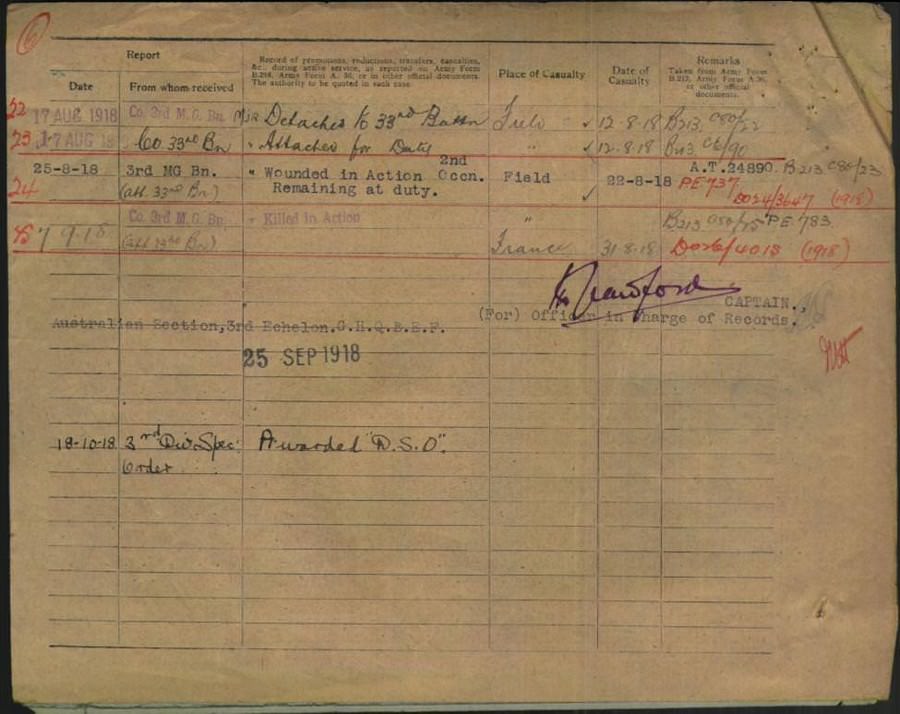 6
Report
Record of promotions, reductions, transfers, casualties,
&c., during active service, as reported on Army Form
B.213, Army Form A. 36, or in other official documents.
The authority to be quoted in each case.
Place of Casualty
Date of
Casualty
Remarks
Taken from Army Form
B.213, Army Form A.36,
or other official
documents.
Date
From whom received
22 17 AUG 1918 Co. 3rd M.G. Bn. Detached to 33rd Battn Field ✓ 12-8-18 B213
23 17 AUG 18 Co 33rd Bn " Attached for Duty " ✓ 12.8.18 B213
2nd
25-8-18 3rd MG Bn. " Wounded in Action Occn. Field 22-8-18 A.T.24890. B213
24 (att. 33rd Bn) Remaining at duty. ✓ PE 737
DO24/3647 (1918)
Co. 3rd M.G. Bn. " Killed in Action " B213 PE 783
7 9.18 (att 33rd Bn) France 31-8-18 DO26/4018 (1918)
CAPTAIN.
(For) Officer in Charge of Records.
Australian Section, 3rd Echelon. G.H.Q. B.E.F.
25 SEP 1918
18-10-18 3rd Div. Spec: Awarded "D.S.O".
Order